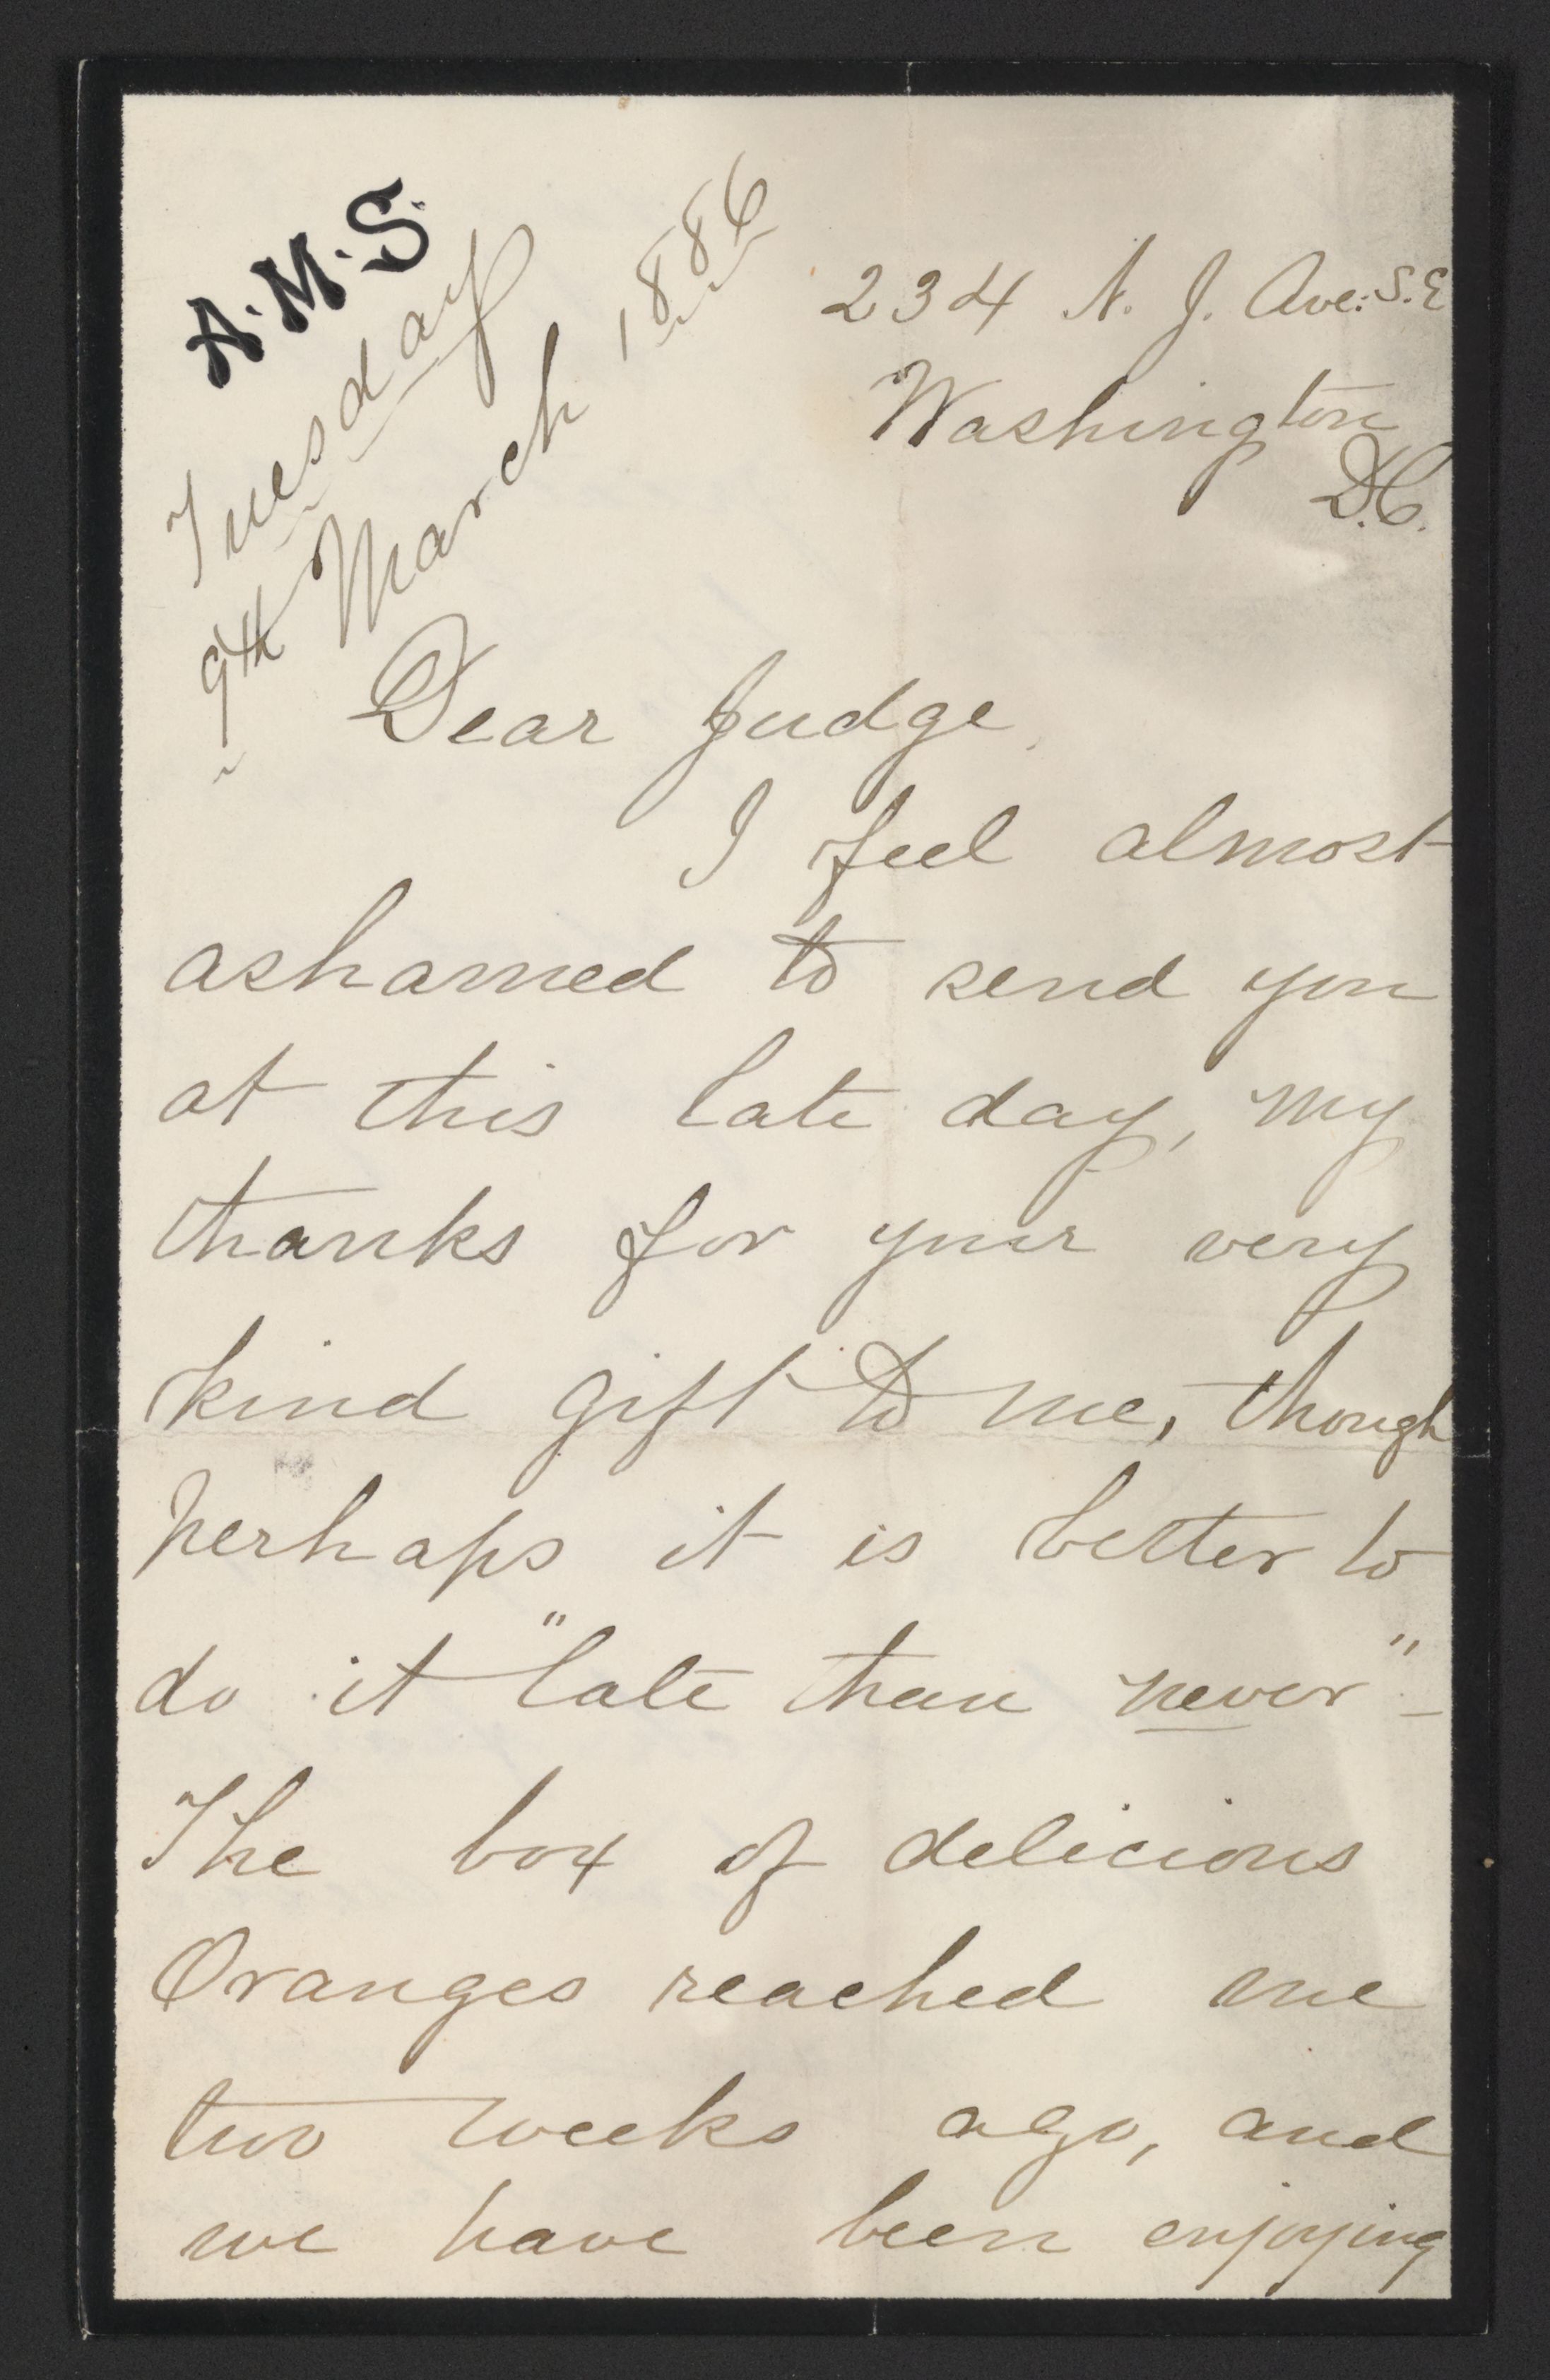 A.M.S.
Tuesday
9th March 1886
234 N. J. Ave: S.E
Washington
D.C.
Dear Judge,
I feel almost
ashamed to send you
at this late day, my
thanks for your very
kind gift to me, though
perhaps it is better to
do it "late than never" –
The box of delicious
Oranges reached me
two weeks ago, and
we have been enjoying